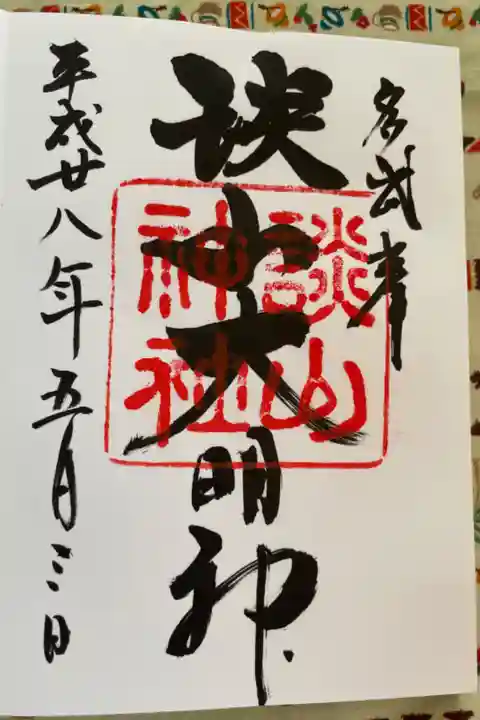 多武峯
談山大明神
談山
神社
平成廿八年五月三日